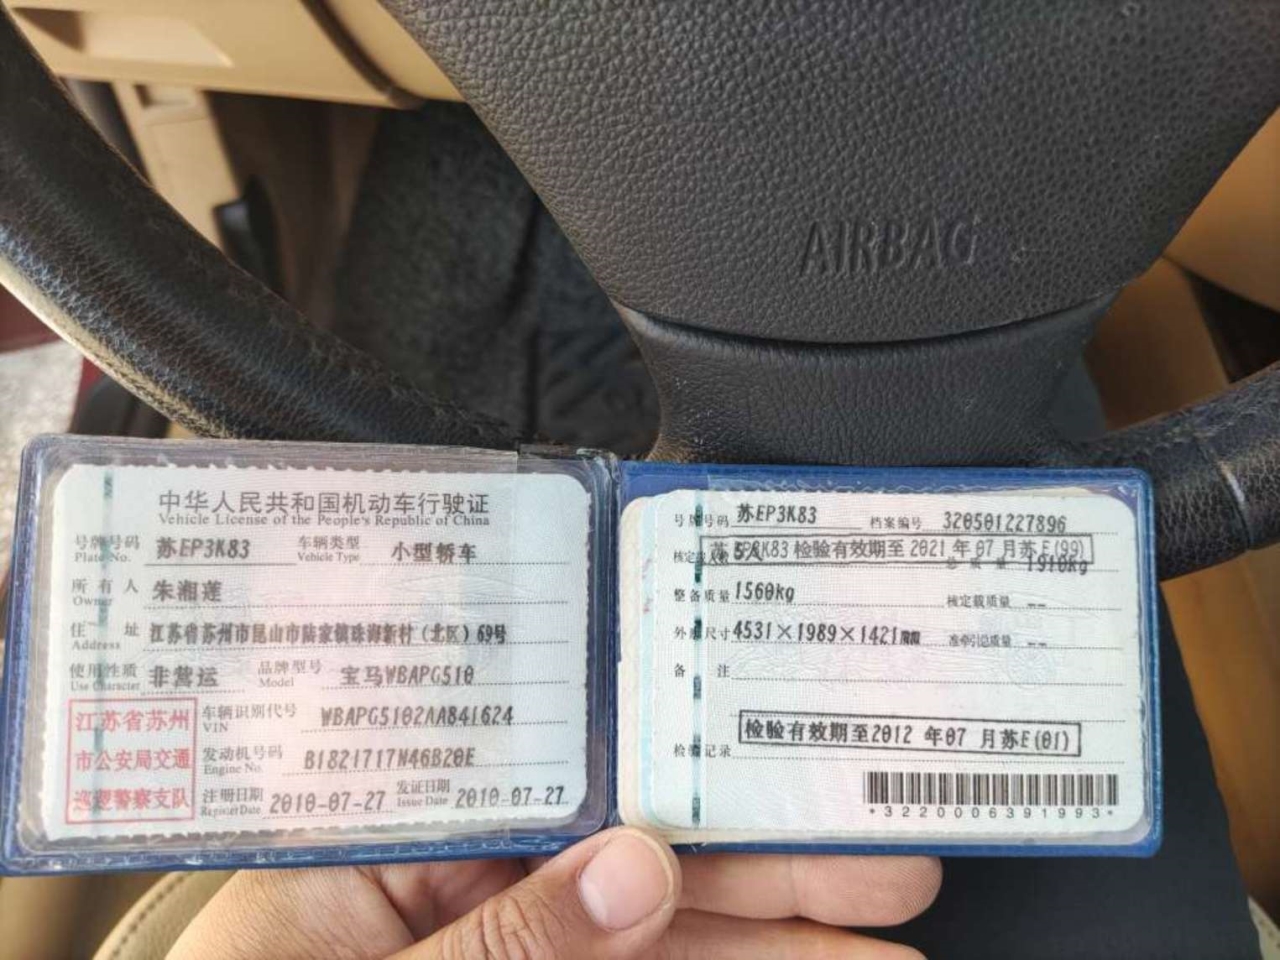 AIRBAG
中华人民共和国机动车行驶证
Vehicle License of the People's Republic of China
号牌号码 苏EP3K83 车辆类型 小型轿车
Plate No. Vehicle Type
所有人 朱湘莲
Owner
住址 江苏省苏州市昆山市陆家镇珠海新村（北区）69号
Address
使用性质 非营运 品牌型号 宝马WBAPG510
Use Character Model
江苏省苏州
市公安局交通
巡逻警察支队
车辆识别代号 WBAPG5102AA841624
VIN
发动机号码 B1821717N46B20E
Engine No.
注册日期 2010-07-27 发证日期 2010-07-27
Register Date Issue Date
号牌号码 苏EP3K83 档案编号 320501227896
核定载人数 5人 总质量 1910kg
苏EP3K83检验有效期至2021年07月苏E(99)
整备质量 1560kg 核定载质量 --
外廓尺寸 4531×1989×1421mm 准牵引总质量 --
备注
检验记录 检验有效期至2012年07月苏E(01)
*3220006391993*